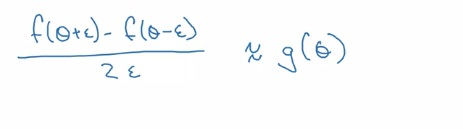 f(θ+ε) - f(θ-ε)
2ε
≈ g(θ)